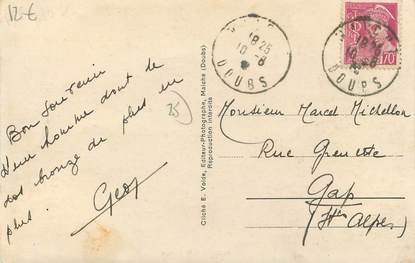 12€
Bon souvenir
d'un homme dont le
dos bronze de plus en
plus.
Geo
25
Cliché E. Voide, Editeur-Photographe, Maiche (Doubs)
Reproduction interdite
18 25
10 -8
DOUBS
DOUBS
70
Monsieur Marcel Michellon
Rue Grenette
Gap
(Htes Alpes)